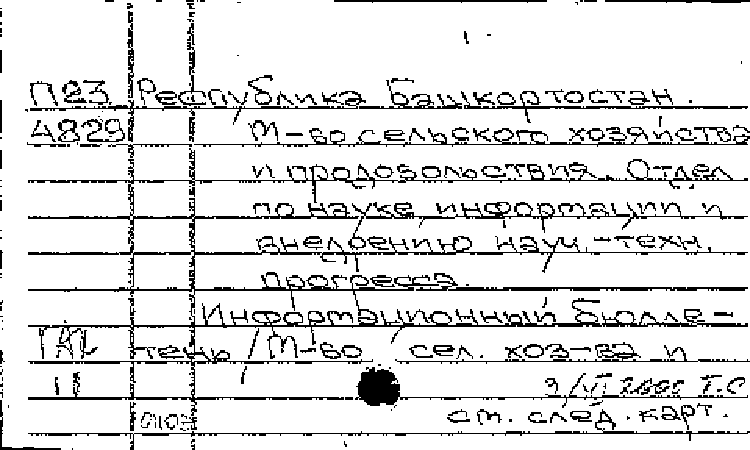 П23 Республика Башкортостан.
4829 М-во сельского хозяйства
и продовольствия. Отдел
по науке, информации и
внедрению науч.-техн.
прогресса.
Информационный бюлле-
тень / М-во сел. хоз-ва и
11
см. след. карт.